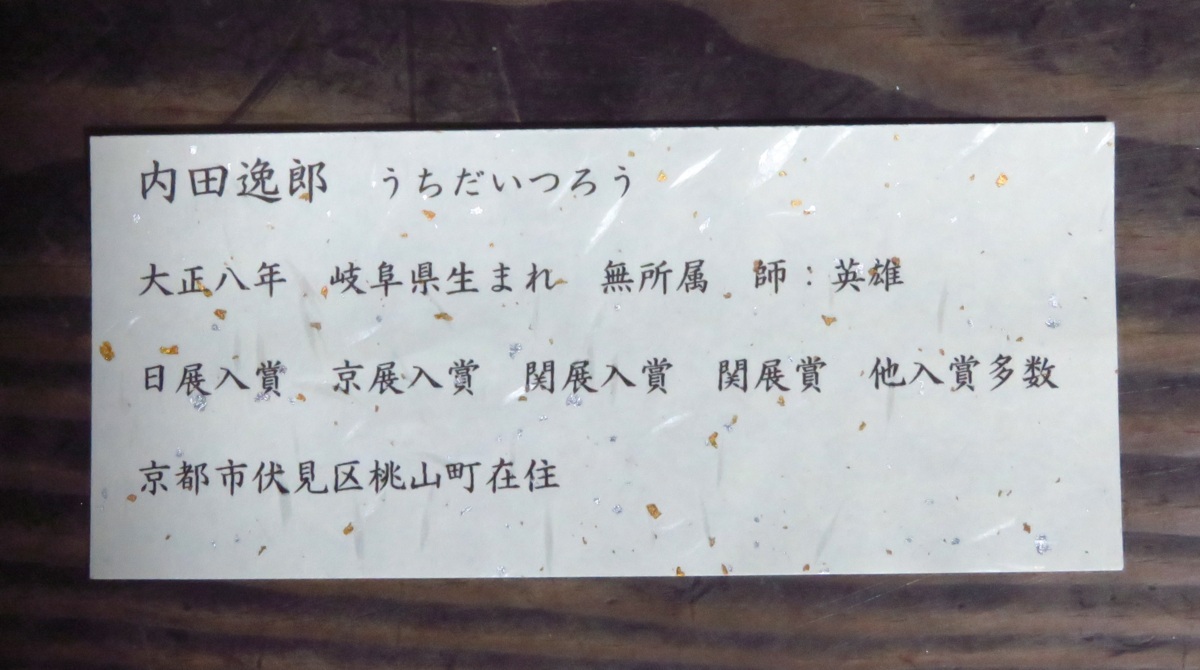 内田逸郎　うちだいつろう
大正八年　岐阜県生まれ　無所属　師：英雄
日展入賞　京展入賞　関展入賞　関展賞　他入賞多数
京都市伏見区桃山町在住